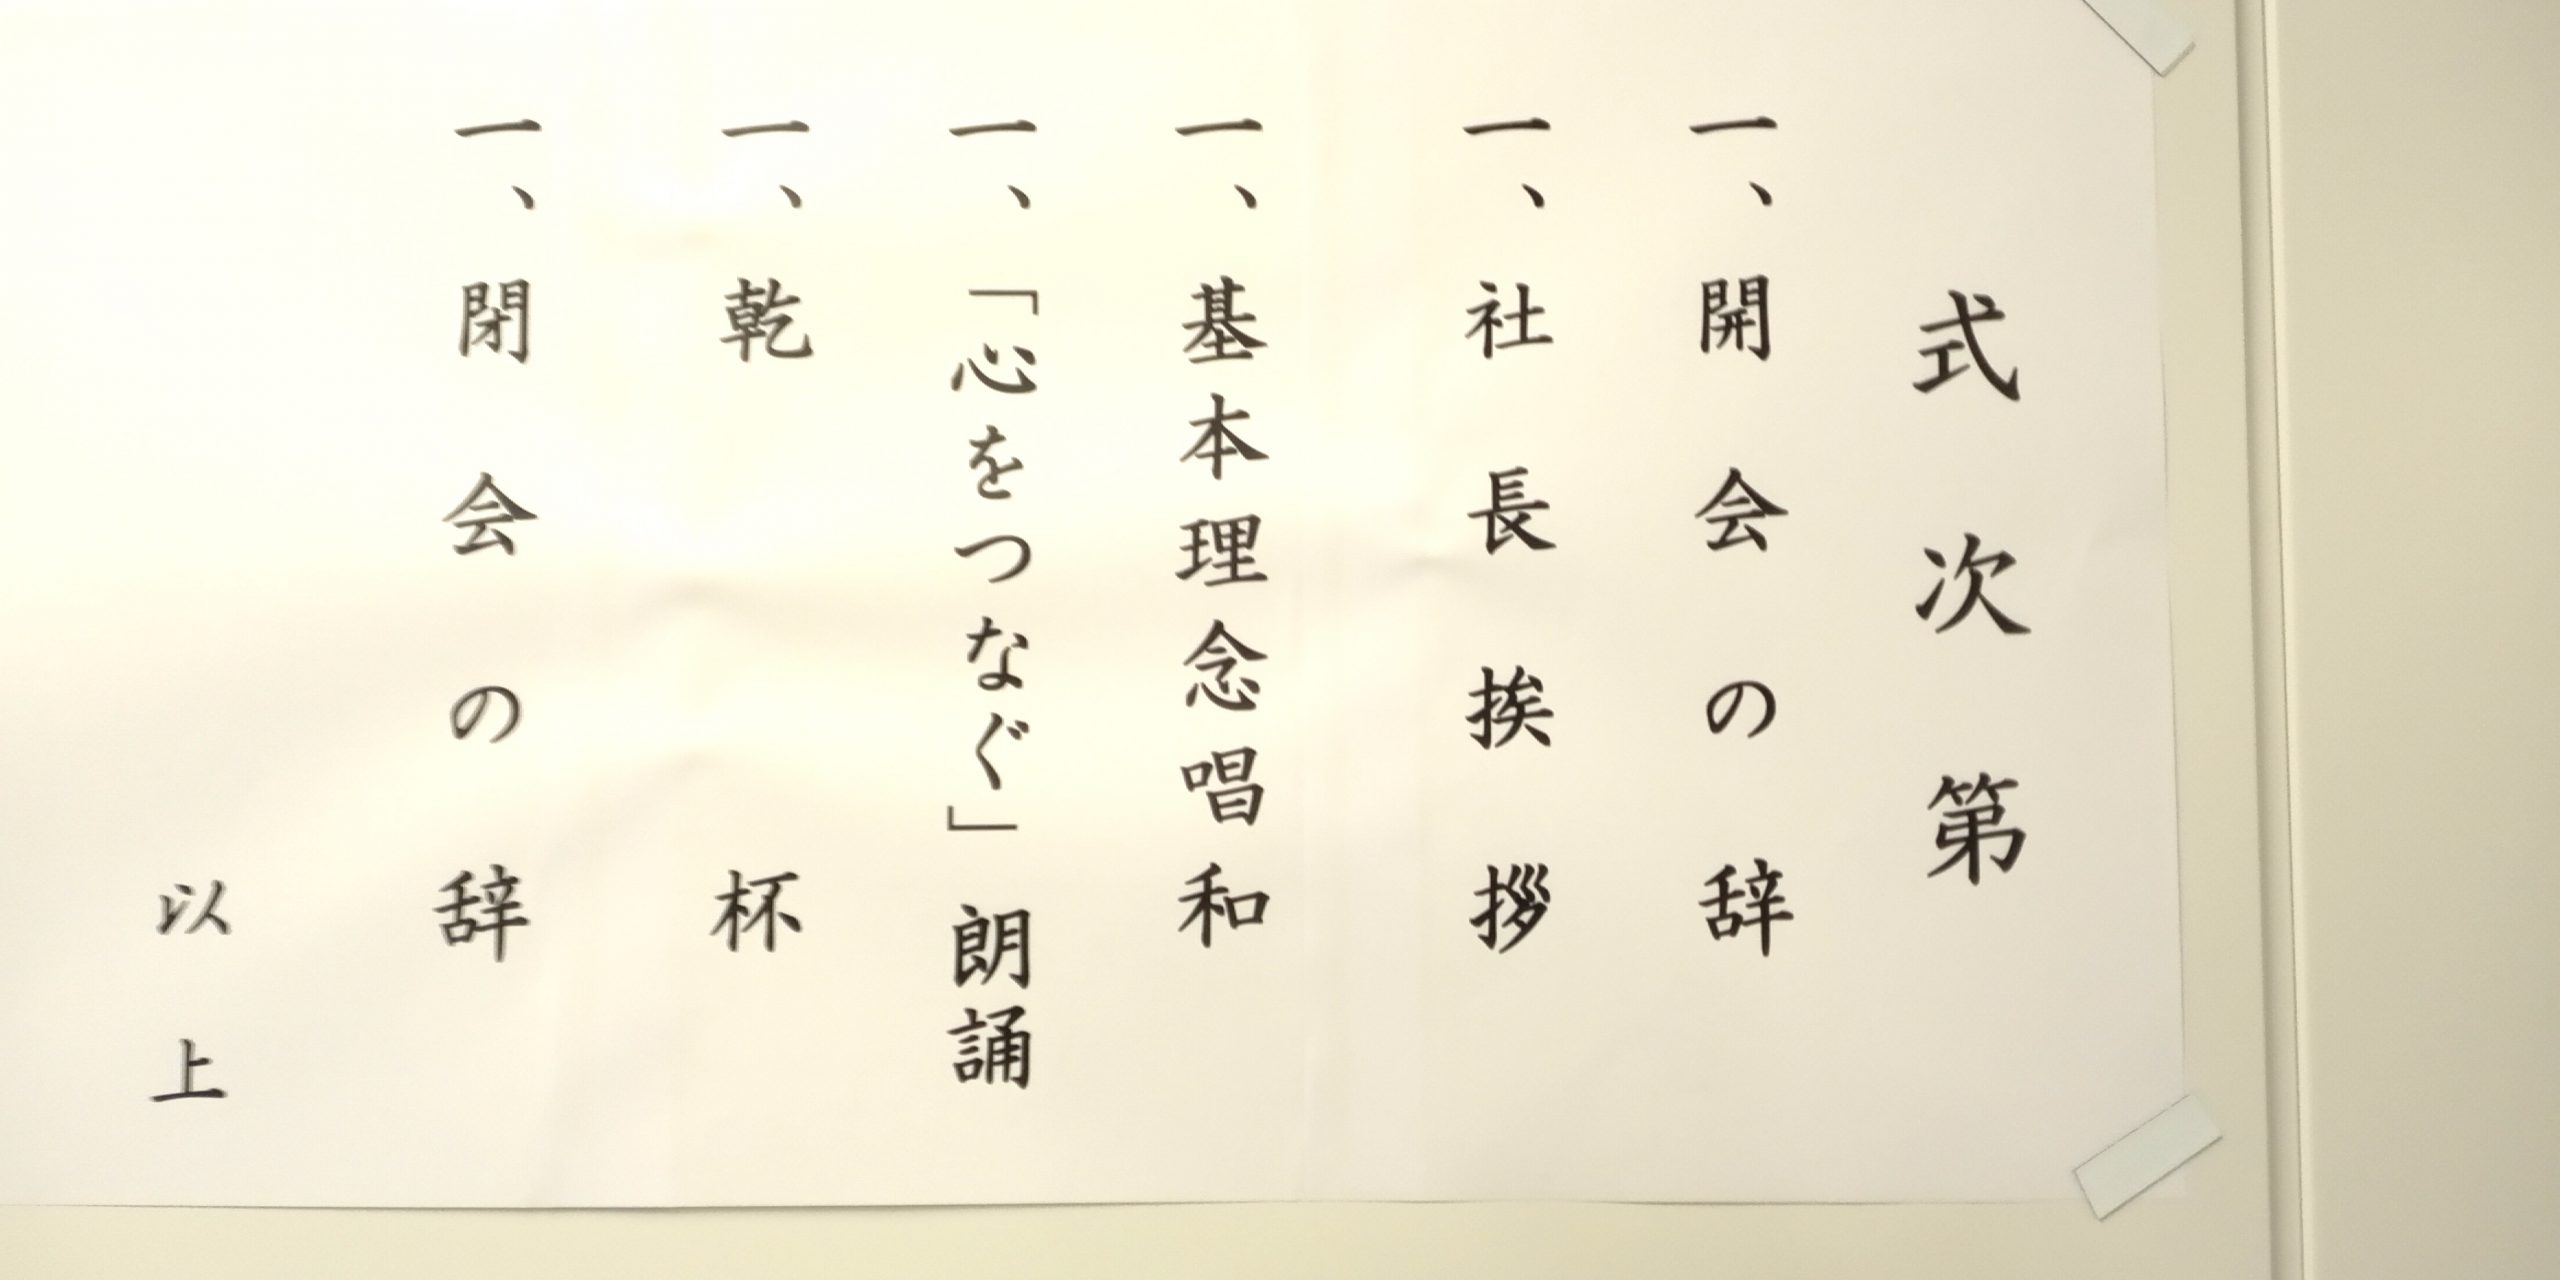 式次第
一、開会の辞
一、社長挨拶
一、基本理念唱和
一、「心をつなぐ」朗誦
一、乾杯
一、閉会の辞
以上